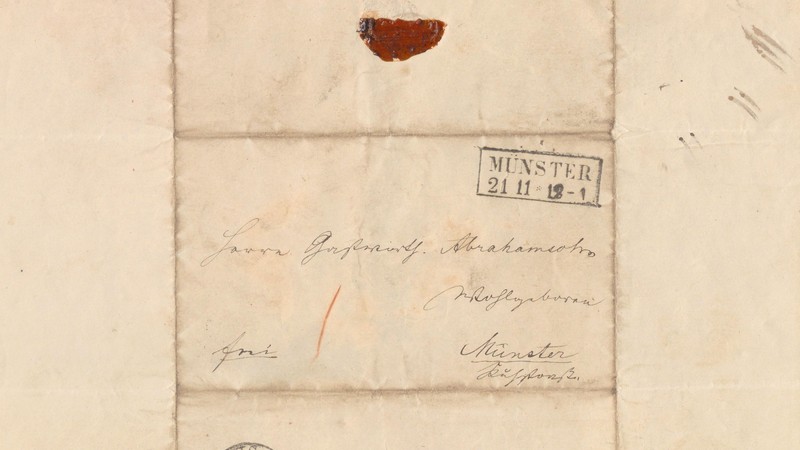 MÜNSTER
21 11 * 12-1
Herrn Gastwirth. Abrahamsohn
Wohlgeboren
frei
Münster